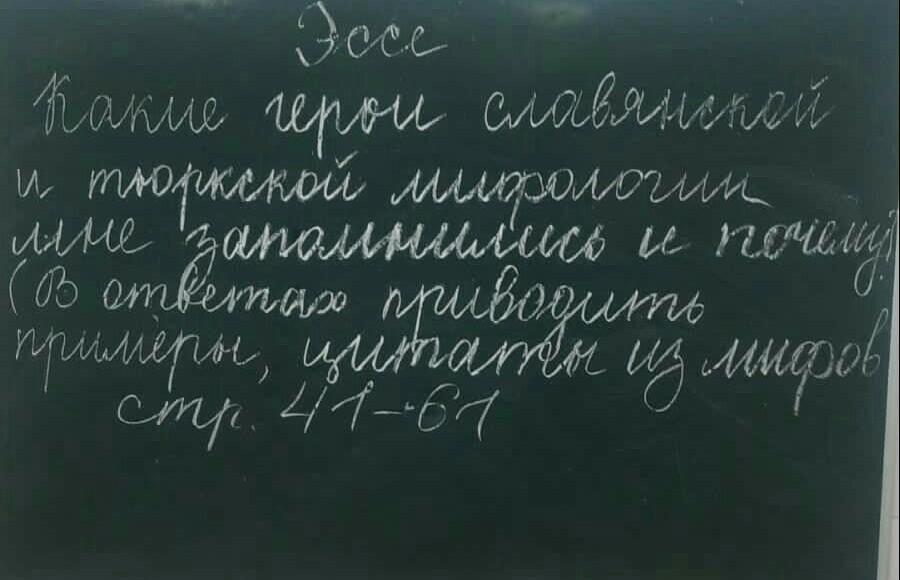 Эссе
Какие герои славянской
и тюркской мифологии
мне запомнились и почему?
(В ответах приводить
примеры, цитаты из мифов
стр. 41-61